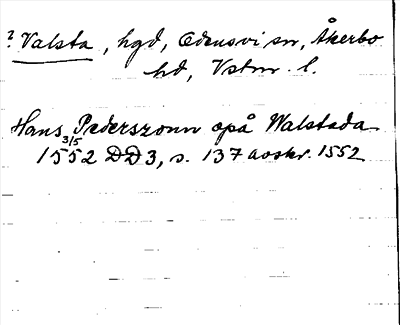 ? Valsta, hgd, Odensvi sn, Åkerbo
hd, Vstm. l.
Hans Pederszonn opå Walstada
3/5
1552 DD3, s. 137 avskr. 1552